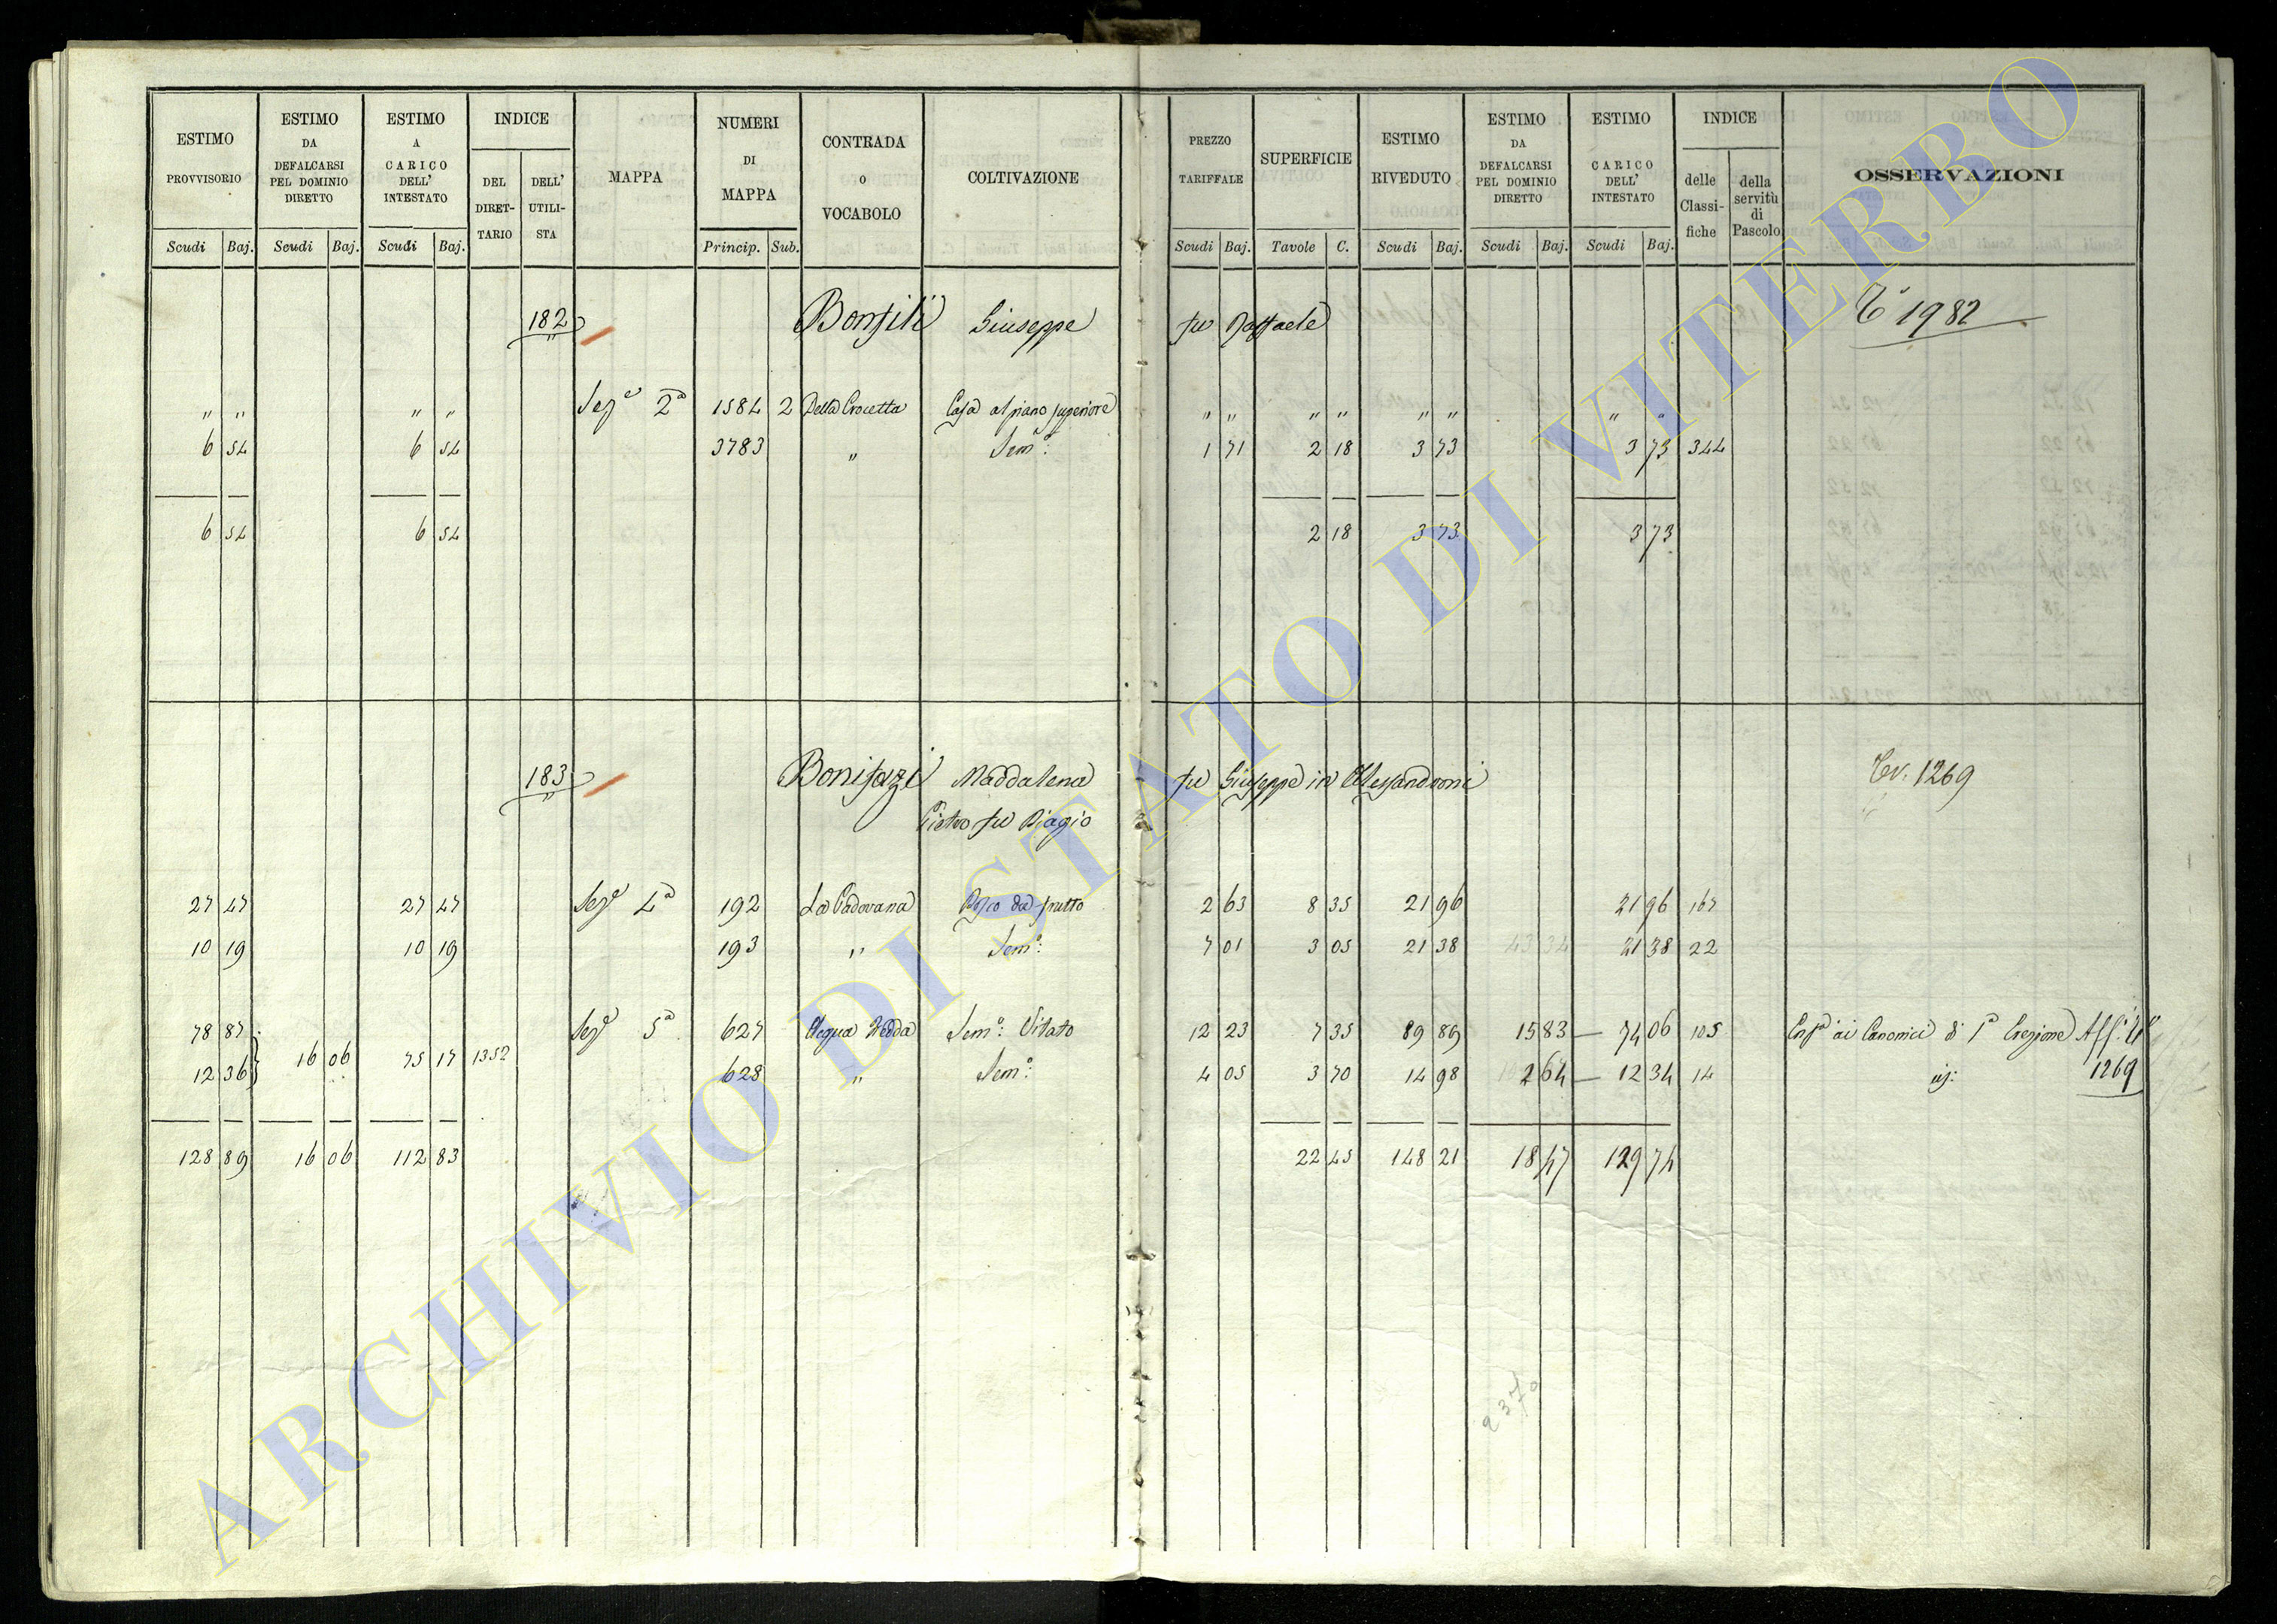 ESTIMO PROVVISORIO
ESTIMO DA DEFALCARSI PEL DOMINIO DIRETTO
ESTIMO A CARICO DELL' INTESTATO
INDICE
DEL DIRET- TARIO
DELL' UTILI- STA
MAPPA
NUMERI DI MAPPA
CONTRADA O VOCABOLO
COLTIVAZIONE
PREZZO TARIFFALE
SUPERFICIE
ESTIMO RIVEDUTO
ESTIMO DA DEFALCARSI PEL DOMINIO DIRETTO
ESTIMO CARICO DELL' INTESTATO
INDICE
delle Classi- fiche
della servitù di Pascolo
OSSERVAZIONI
Scudi Baj. Scudi Baj. Scudi Baj. Princip. Sub. Scudi Baj. Tavole C. Scudi Baj. Scudi Baj. Scudi Baj.
182 Bonfili Giuseppe fu Raffaele 1982
" " " " Seze 2a 1584 2 Della Crocetta Casa al piano superiore " " " " " " " "
6 54 6 54 3783 " Semo: 1 71 2 18 3 73 3 73 344
6 54 6 54 2 18 3 73 3 73
183 Bonifazi Maddalena fu Giuseppe in Alessandroni Ev. 1269
Pietro fu Biagio
27 47 27 47 Seze 4a 192 La Padovana Bosco da frutto 2 63 8 35 21 96 21 96 167
10 19 10 19 193 " Semo: 7 01 3 05 21 38 43 34 21 38 22
78 87 Seze 5a 627 Acqua Fredda Semo: Vitato 12 23 7 35 89 89 15 83 — 74 06 105 ai Canonici di 1a Erezione
16 06 75 17 1352
12 36 628 " Semo: 4 05 3 70 14 98 2 64 — 12 34 14 1269
128 89 16 06 112 83 22 45 148 21 18 47 129 74
2370
ARCHIVIO DI STATO DI VITERBO